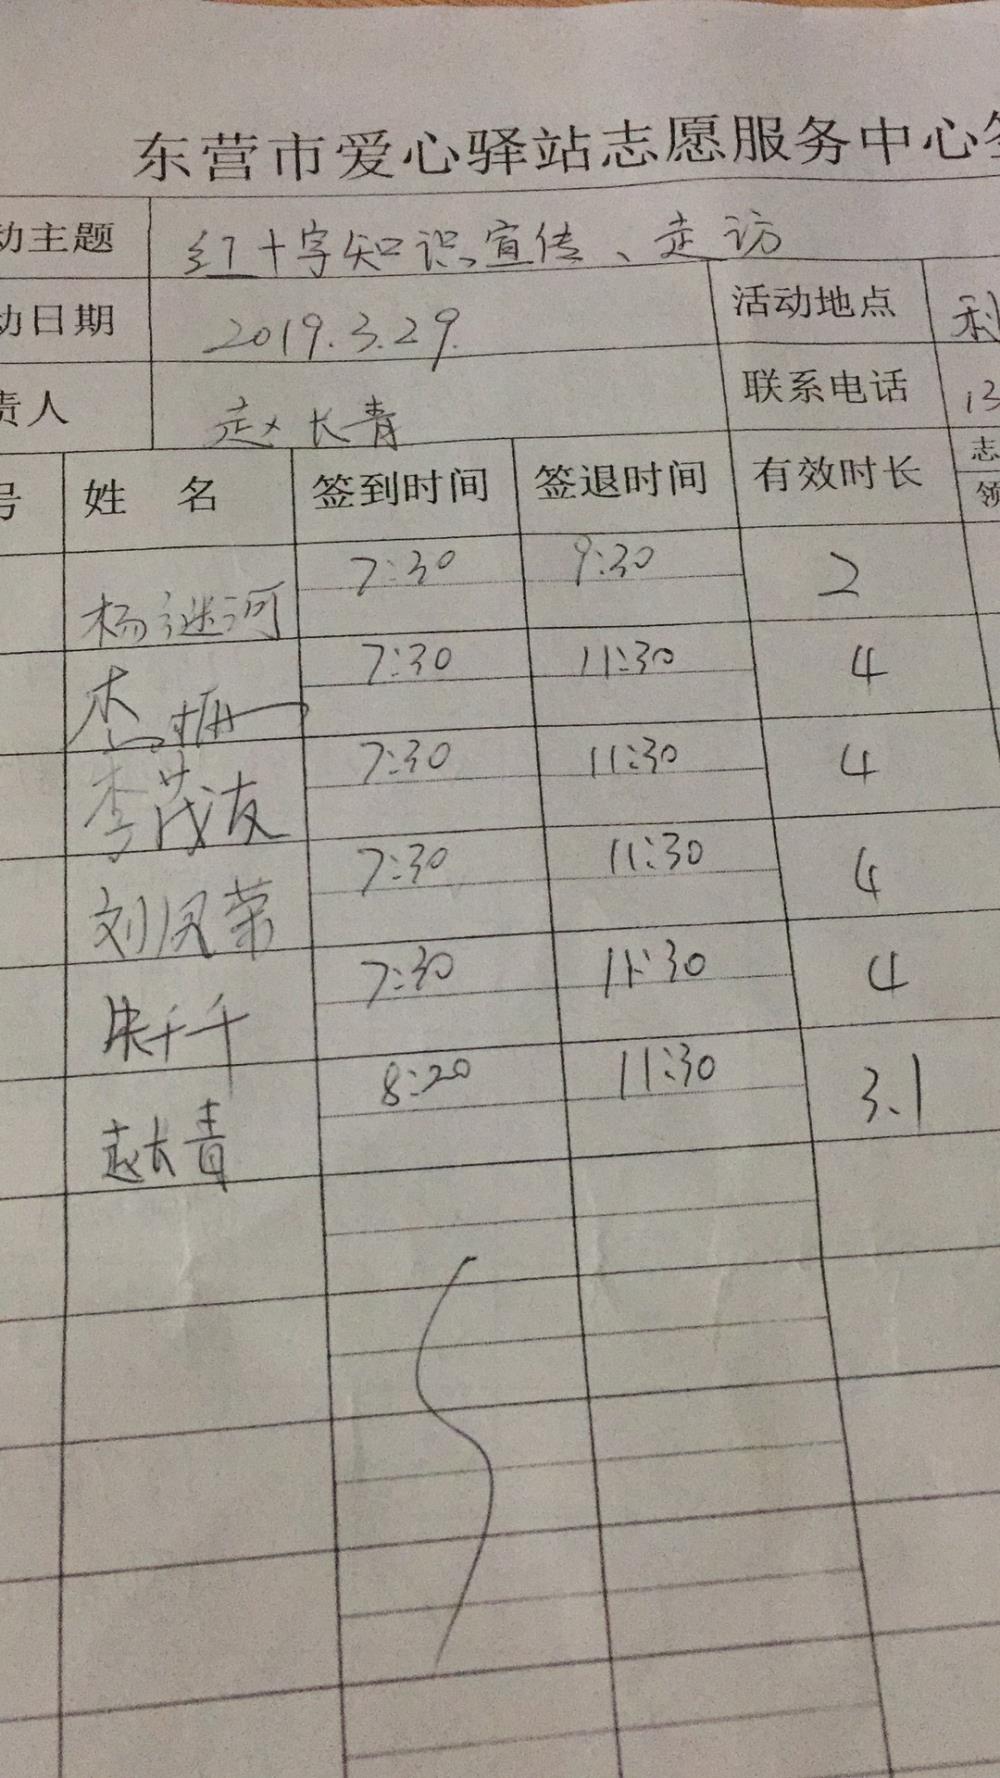 东营市爱心驿站志愿服务中心签
动主题 红十字知识宣传、走访
动日期 2019.3.29. 活动地点 利
责人 赵长青 联系电话 13
号 姓 名 签到时间 签退时间 有效时长 志
领
杨 河 7:30 9:30 2
7:30 11:30 4
李茂友 7:30 11:30 4
刘凤荣 7:30 11:30 4
朱千千 7:30 11:30 4
赵长青 8:20 11:30 3.1